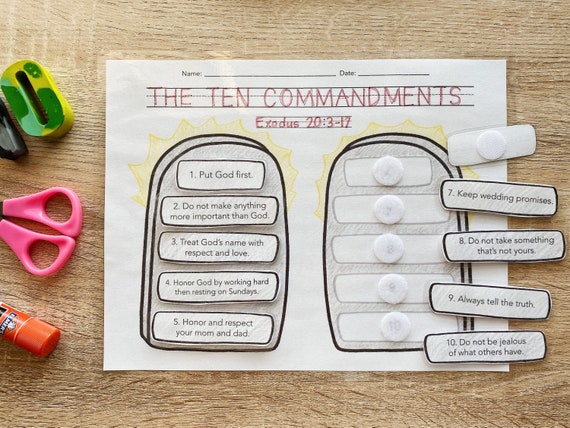 Name: Date:
THE TEN COMMANDMENTS
Exodus 20:3-17
1. Put God first.
2. Do not make anything
more important than God.
3. Treat God's name with
respect and love.
4. Honor God by working hard
then resting on Sundays.
5. Honor and respect
your mom and dad.
7. Keep wedding promises.
8. Do not take something
that's not yours.
9. Always tell the truth.
10. Do not be jealous
of what others have.